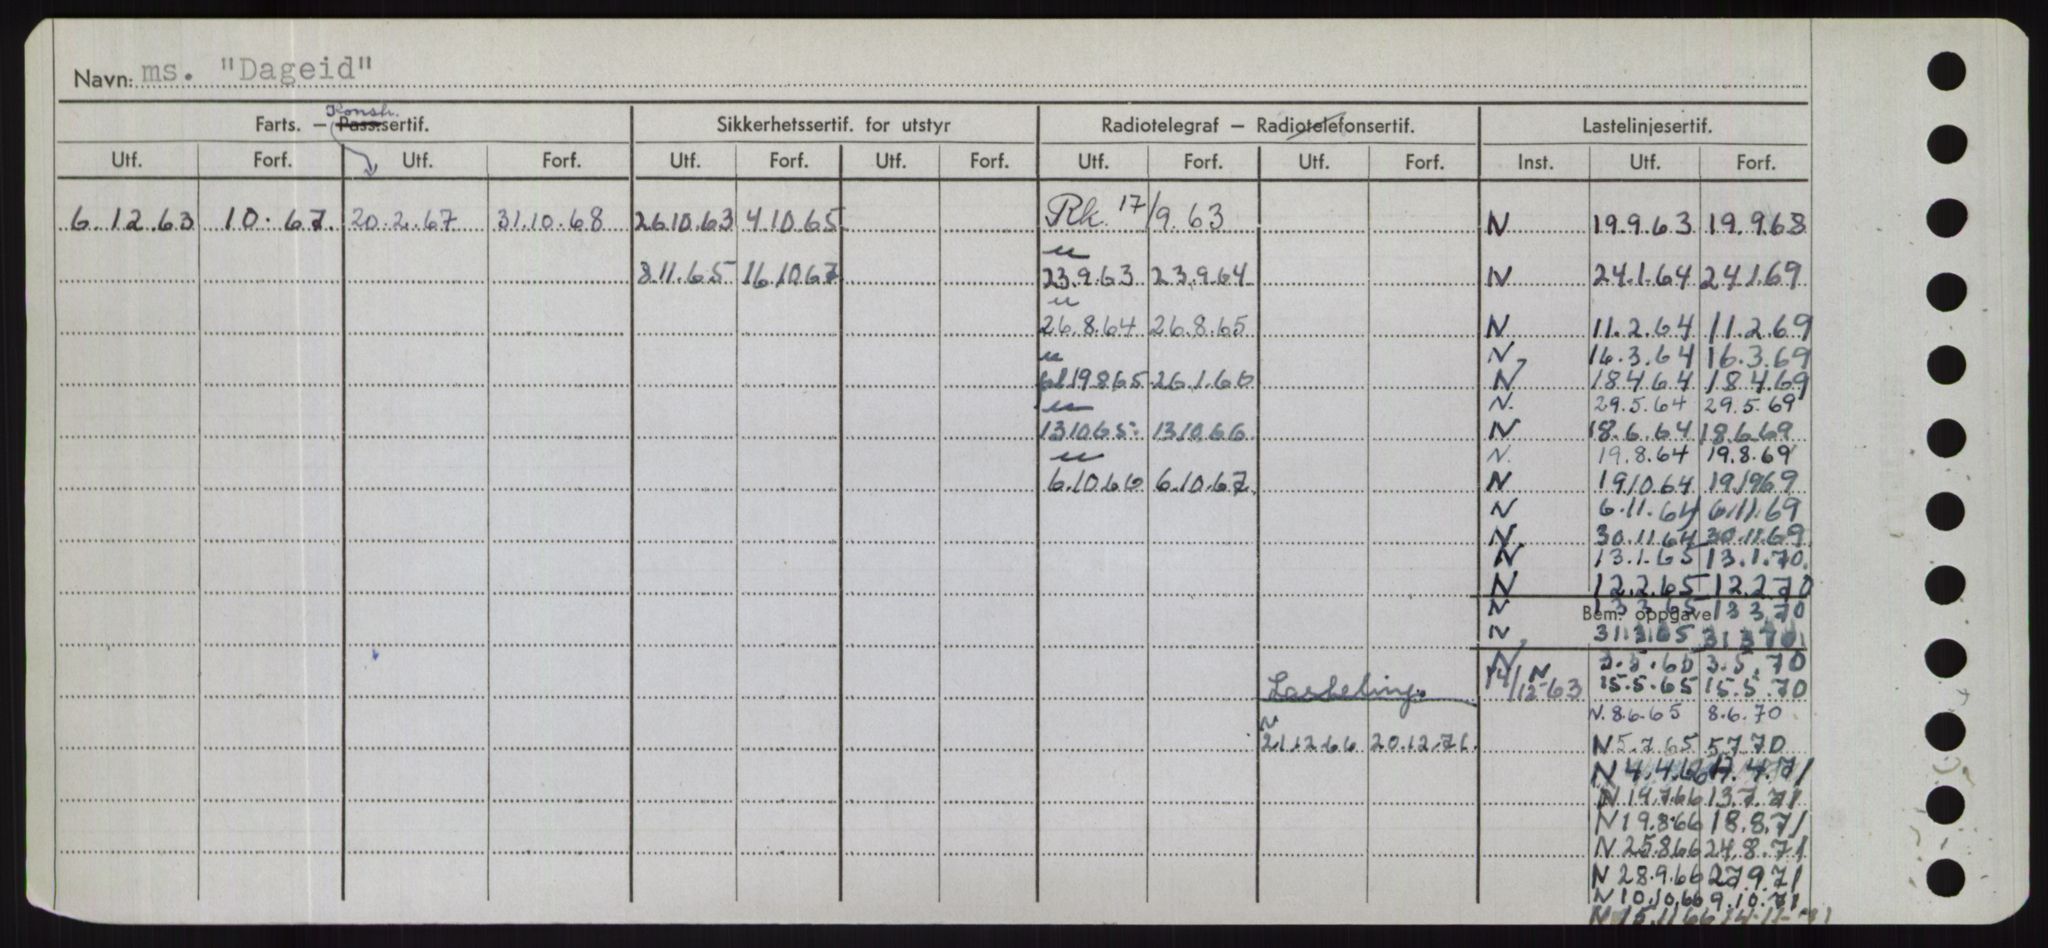 Navn: ms. "Dageid"
Konstr.
Farts. — Pass.sertif. Sikkerhetssertif. for utstyr Radiotelegraf — Radiotelefonsertif. Lastelinjesertif.
Utf. Forf. Utf. Forf. Utf. Forf. Utf. Forf. Utf. Forf. Utf. Forf. Inst. Utf. Forf.
6.12.63 10.67. 20.2.67 31.10.68 26.10.63 4.10.65 Rk. 17/9.63 N 19.9.63 19.9.68
8.11.65 16.10.67 23.9.63 23.9.64 N 24.1.64 24.1.69
26.8.64 26.8.65 N 11.2.64 11.2.69
N 16.3.64 16.3.69
19.8.65 26.1.66 N 18.4.64 18.4.69
N. 29.5.64 29.5.69
13.10.65 13.10.66 N 18.6.64 18.6.69
N. 19.8.64 19.8.69
6.10.66 6.10.67 N 19.10.64 19.10.69
N 6.11.64 6.11.69
N. 30.11.64 30.11.69
N 13.1.65 13.1.70
N 12.2.65 12.2.70
N 13.3.65 13.3.70
Bem. oppgave
N 31.3.65 31.3.70
N 3.5.65 3.5.70
14/12-63 N 15.5.65 15.5.70
N. 8.6.65 8.6.70
N
21.12.66 20.12.71 N 5.7.65 5.7.70
N 4.4.66 4.71
N 14.7.66 13.7.71
N 19.8.66 18.8.71
N 25.8.66 24.8.71
N 28.9.66 27.9.71
N 10.10.66 9.10.71
N 15.11.66 14.11.71